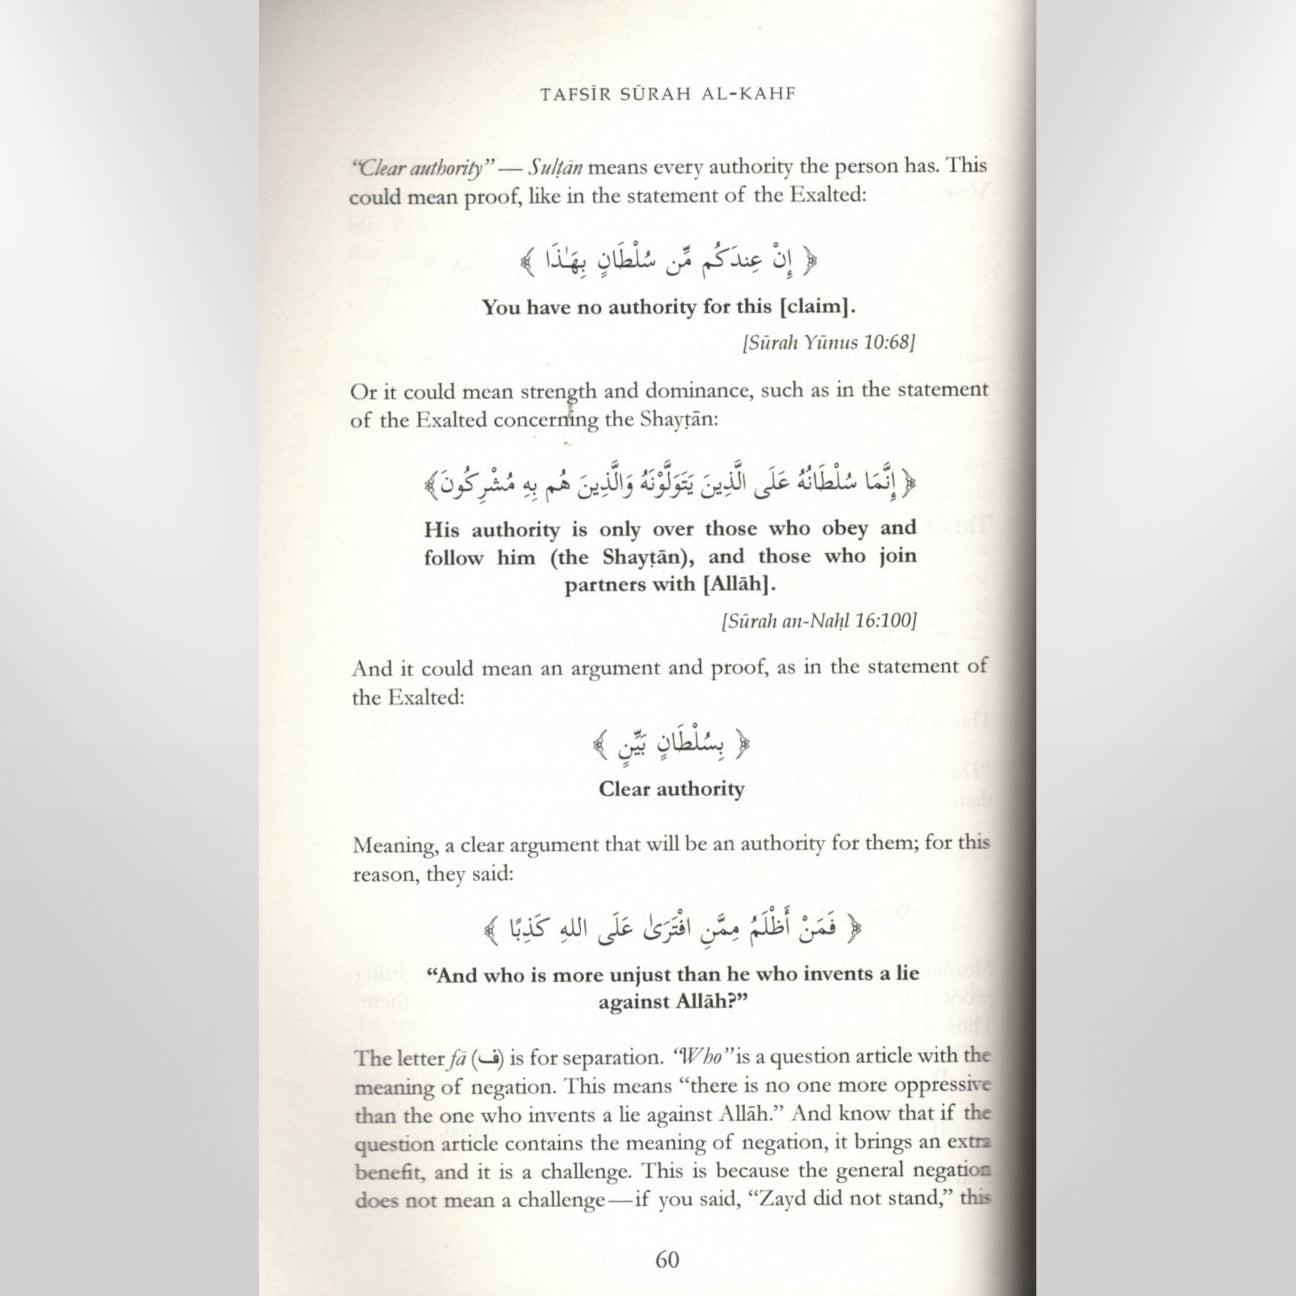 TAFSĪR SŪRAH AL-KAHF
“Clear authority” — Sulṭān means every authority the person has. This
could mean proof, like in the statement of the Exalted:
﴿ إِنْ عِندَكُم مِّن سُلْطَانٍ بِهَٰذَا ﴾
You have no authority for this [claim].
[Sūrah Yūnus 10:68]
Or it could mean strength and dominance, such as in the statement
of the Exalted concerning the Shayṭān:
﴿ إِنَّمَا سُلْطَانُهُ عَلَى الَّذِينَ يَتَوَلَّوْنَهُ وَالَّذِينَ هُم بِهِ مُشْرِكُونَ﴾
His authority is only over those who obey and
follow him (the Shayṭān), and those who join
partners with [Allāh].
[Sūrah an-Naḥl 16:100]
And it could mean an argument and proof, as in the statement of
the Exalted:
﴿ بِسُلْطَانٍ بَيِّنٍ ﴾
Clear authority
Meaning, a clear argument that will be an authority for them; for this
reason, they said:
﴿ فَمَنْ أَظْلَمُ مِمَّنِ افْتَرَىٰ عَلَى اللهِ كَذِبًا ﴾
“And who is more unjust than he who invents a lie
against Allāh?”
The letter fā (ف) is for separation. “Who” is a question article with the
meaning of negation. This means “there is no one more oppressive
than the one who invents a lie against Allāh.” And know that if the
question article contains the meaning of negation, it brings an extra
benefit, and it is a challenge. This is because the general negation
does not mean a challenge—if you said, “Zayd did not stand,” this
60